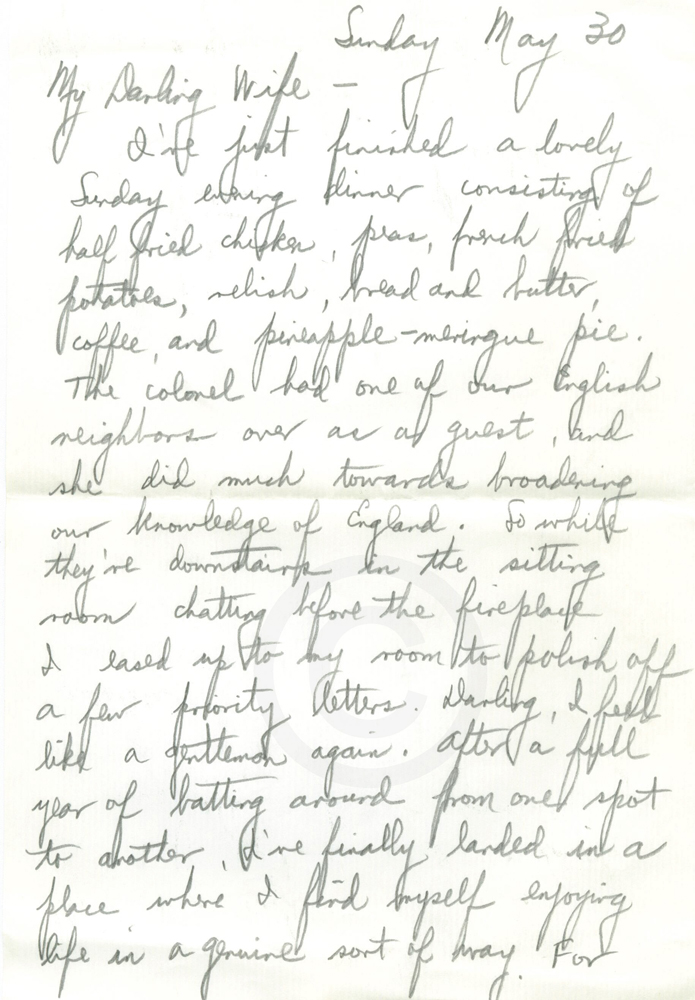 Sunday May 30
My Darling Wife —
I've just finished a lovely
Sunday evening dinner consisting of
half fried chicken, peas, french fried
potatoes, relish, bread and butter,
coffee, and pineapple-meringue pie.
The colonel had one of our English
neighbors over as a guest, and
she did much towards broadening
our knowledge of England. So while
they're downstairs in the sitting
room chatting before the fireplace
I eased up to my room to polish off
a few priority letters. Darling, I feel
like a gentleman again. After a full
year of batting around from one spot
to another, I've finally landed in a
place where I find myself enjoying
life in a genuine sort of way. For